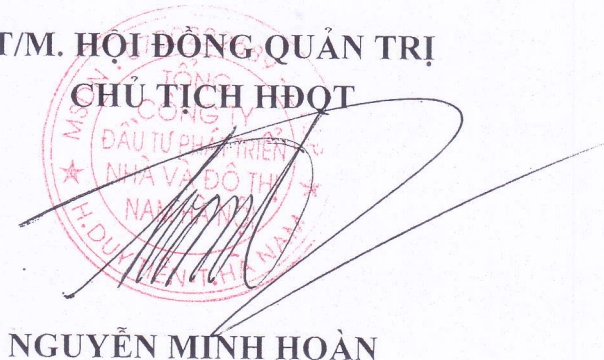 T/M. HỘI ĐỒNG QUẢN TRỊ
CHỦ TỊCH HĐQT
TỔNG
CÔNG TY
ĐẦU TƯ PHÁT TRIỂN
NHÀ VÀ ĐÔ THỊ
NAM HÀ NỘI
H.DUY TIÊN-T.HÀ NAM
NGUYỄN MINH HOÀN